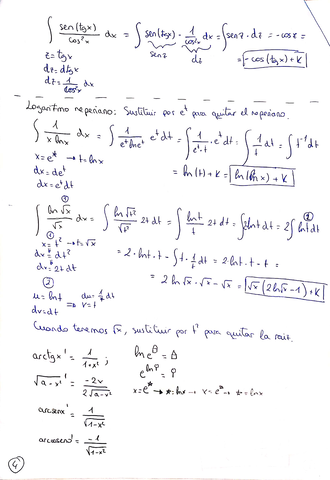 ∫ sen(tgx)/cos²x dx = ∫ sen(tgx) · 1/cos²x dx = ∫ senz · dz = -cosz =
z = tgx
dz = dtgx
dz = 1/cos²x dx
= -cos(tgx) + K
Logaritmo neperiano: Sustituir por e^t para quitar el neperiano.
∫ 1/(x lnx) dx = ∫ 1/(e^t lne^t) e^t dt = ∫ 1/(e^t · t) · e^t dt = ∫ 1/t dt = ∫ t⁻¹ dt
x = e^t → t = lnx
dx = de^t
dx = e^t dt
= ln(t) + K = ln(lnx) + K
∫ ln√x/√x dx = ∫ ln√t²/√t² 2t dt = ∫ lnt/t 2t dt = ∫ 2lnt dt = 2∫ lnt dt
①
x = t² → t = √x
dx = dt²
dx = 2t dt
= 2 · lnt · t - ∫ t · 1/t dt = 2 lnt · t - t =
= 2 ln√x · √x - √x = √x (2ln√x - 1) + K
②
u = lnt du = 1/t dt
dv = dt ⇒ v = t
Cuando tenemos √x, sustituir por t² para quitar la raíz.
arctgx' = 1/(1+x²) ;
√a-x²' = -2x/(2√a-x²)
arcsenx' = 1/√1-x²
-1/√1-x²
x = e^t
4